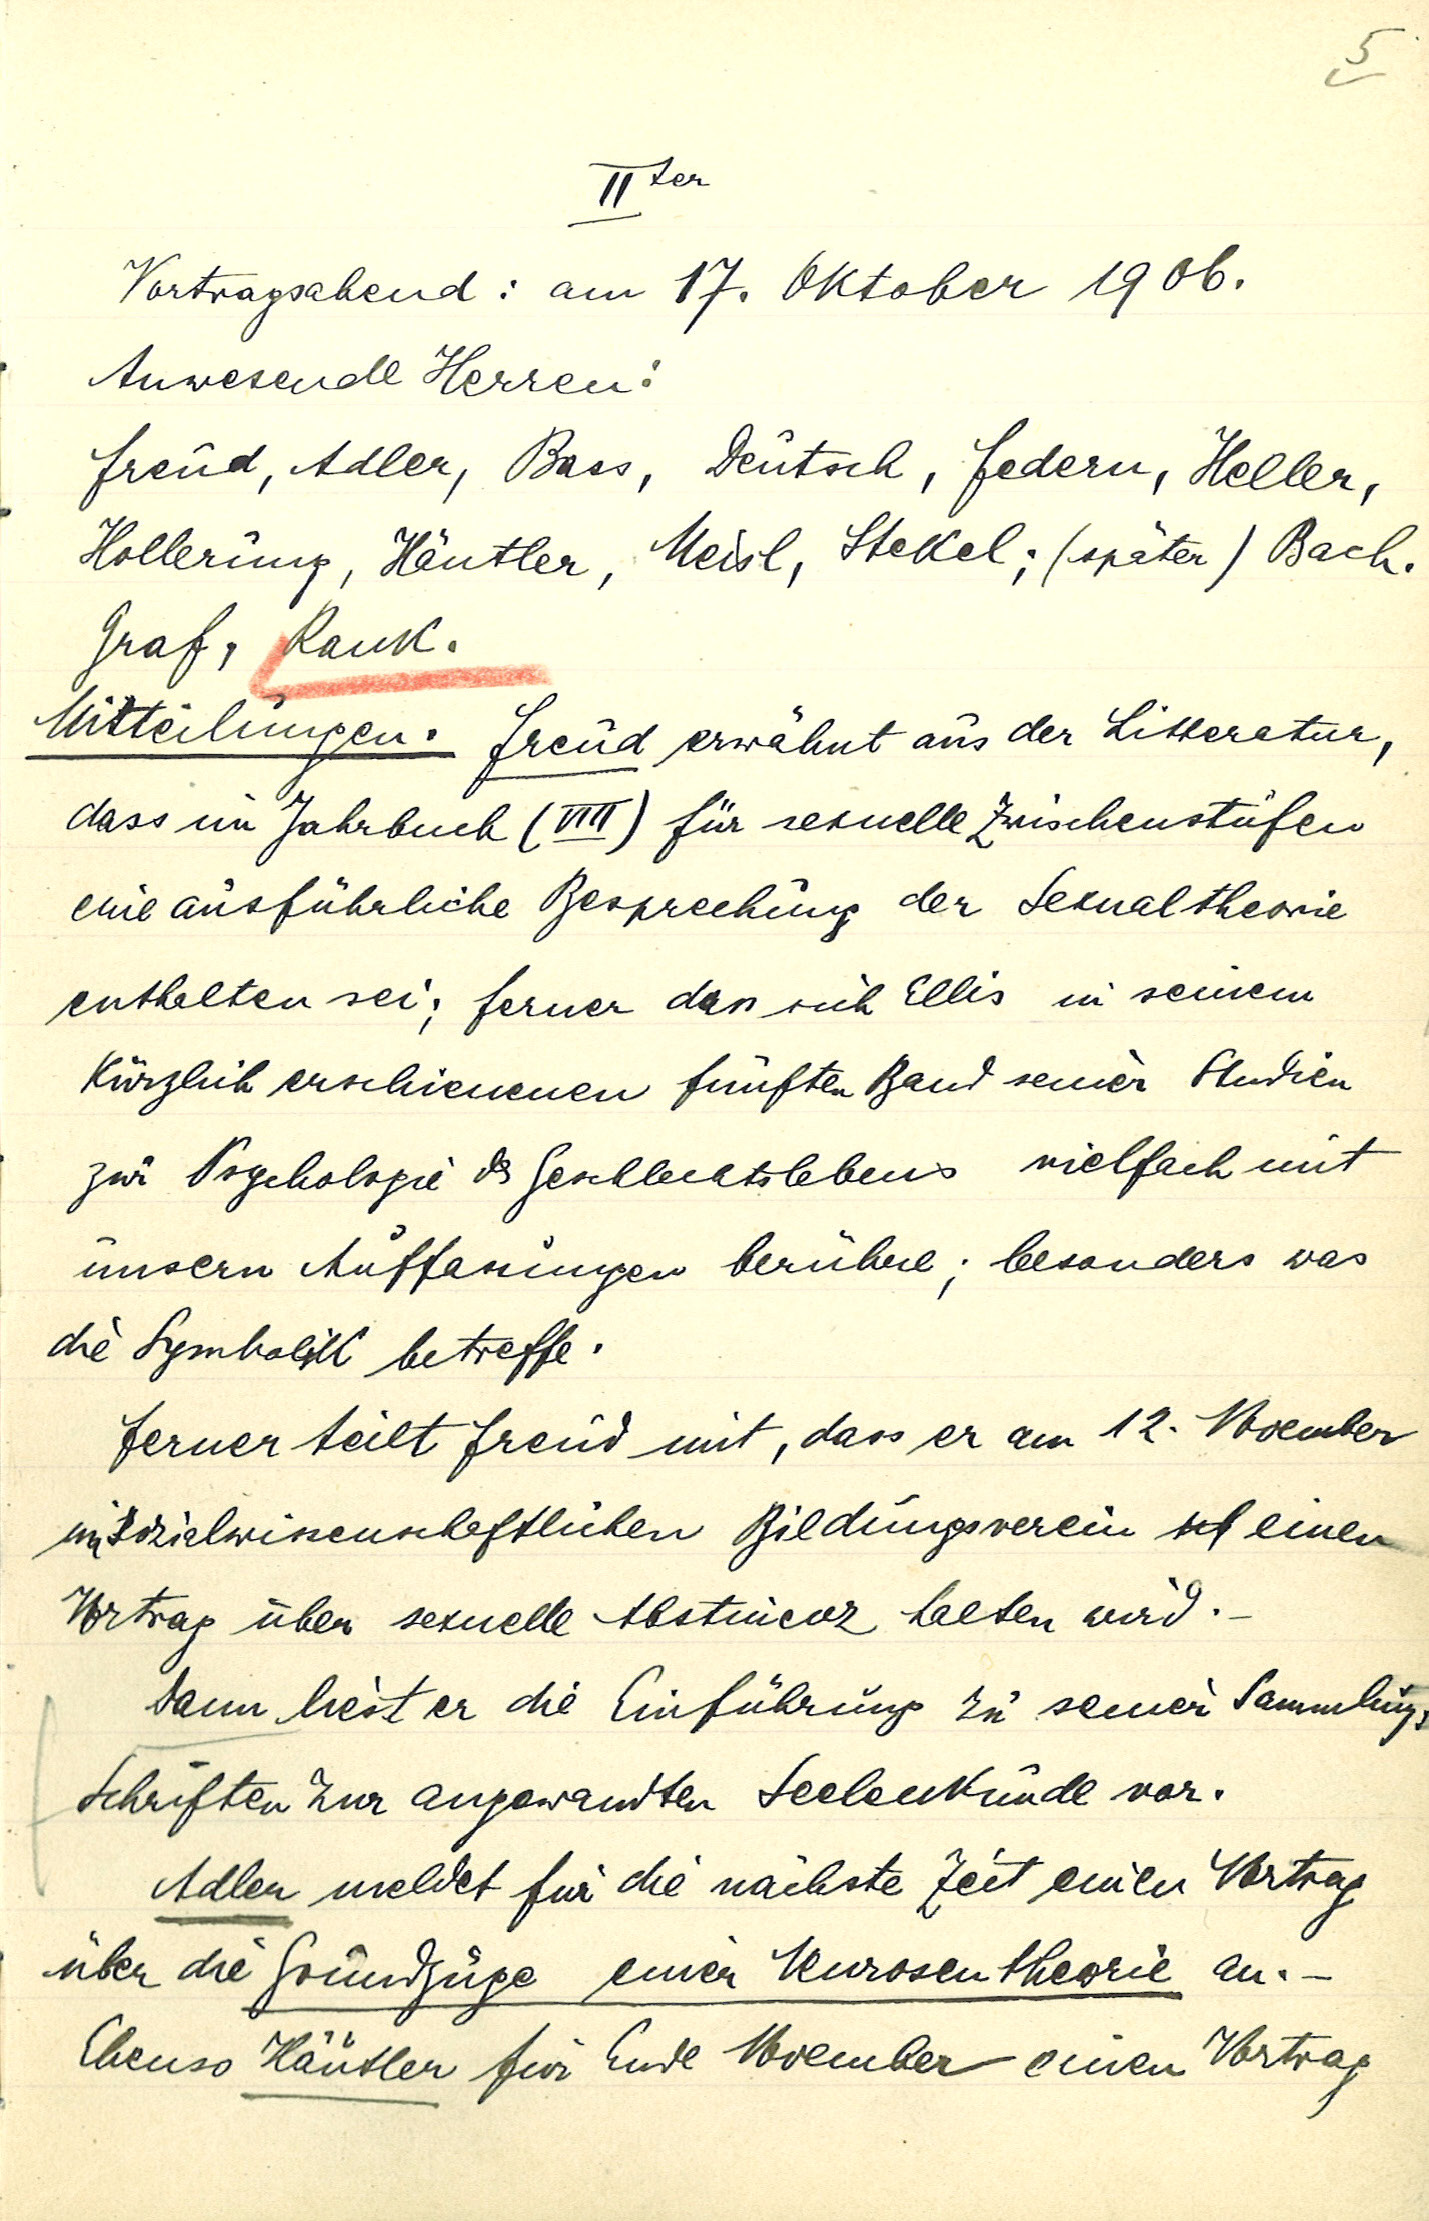 5
IIter
Vortragsabend: am 17. Oktober 1906.
Anwesende Herren:
Freud, Adler, Bass, Deutsch, Federn, Heller,
Hollerung, Häutler, Meisl, Stekel; (später) Bach.
Graf, Rank.
Mitteilungen. Freud erwähnt aus der Litteratur,
dass im Jahrbuch (VIII) für sexuelle Zwischenstufen
eine ausführliche Besprechung der Sexualtheorie
enthalten sei; ferner dass sich Ellis in seinem
kürzlich erschienenen fünften Band seiner Studien
zur Psychologie des Geschlechtslebens vielfach mit
unsern Auffassungen berühre; besonders was
die Symbolik betreffe.
Ferner teilt Freud mit, dass er am 12. November
im sozialwissenschaftlichen Bildungsverein einen
Vortrag über sexuelle Abstinenz halten wird.–
Dann liest er die Einführung zu seiner Sammlung:
Schriften zur angewandten Seelenkunde vor.
Adler meldet für die nächste Zeit einen Vortrag
über die Grundzüge einer Neurosentheorie an.–
Ebenso Häutler für Ende November einen Vortrag